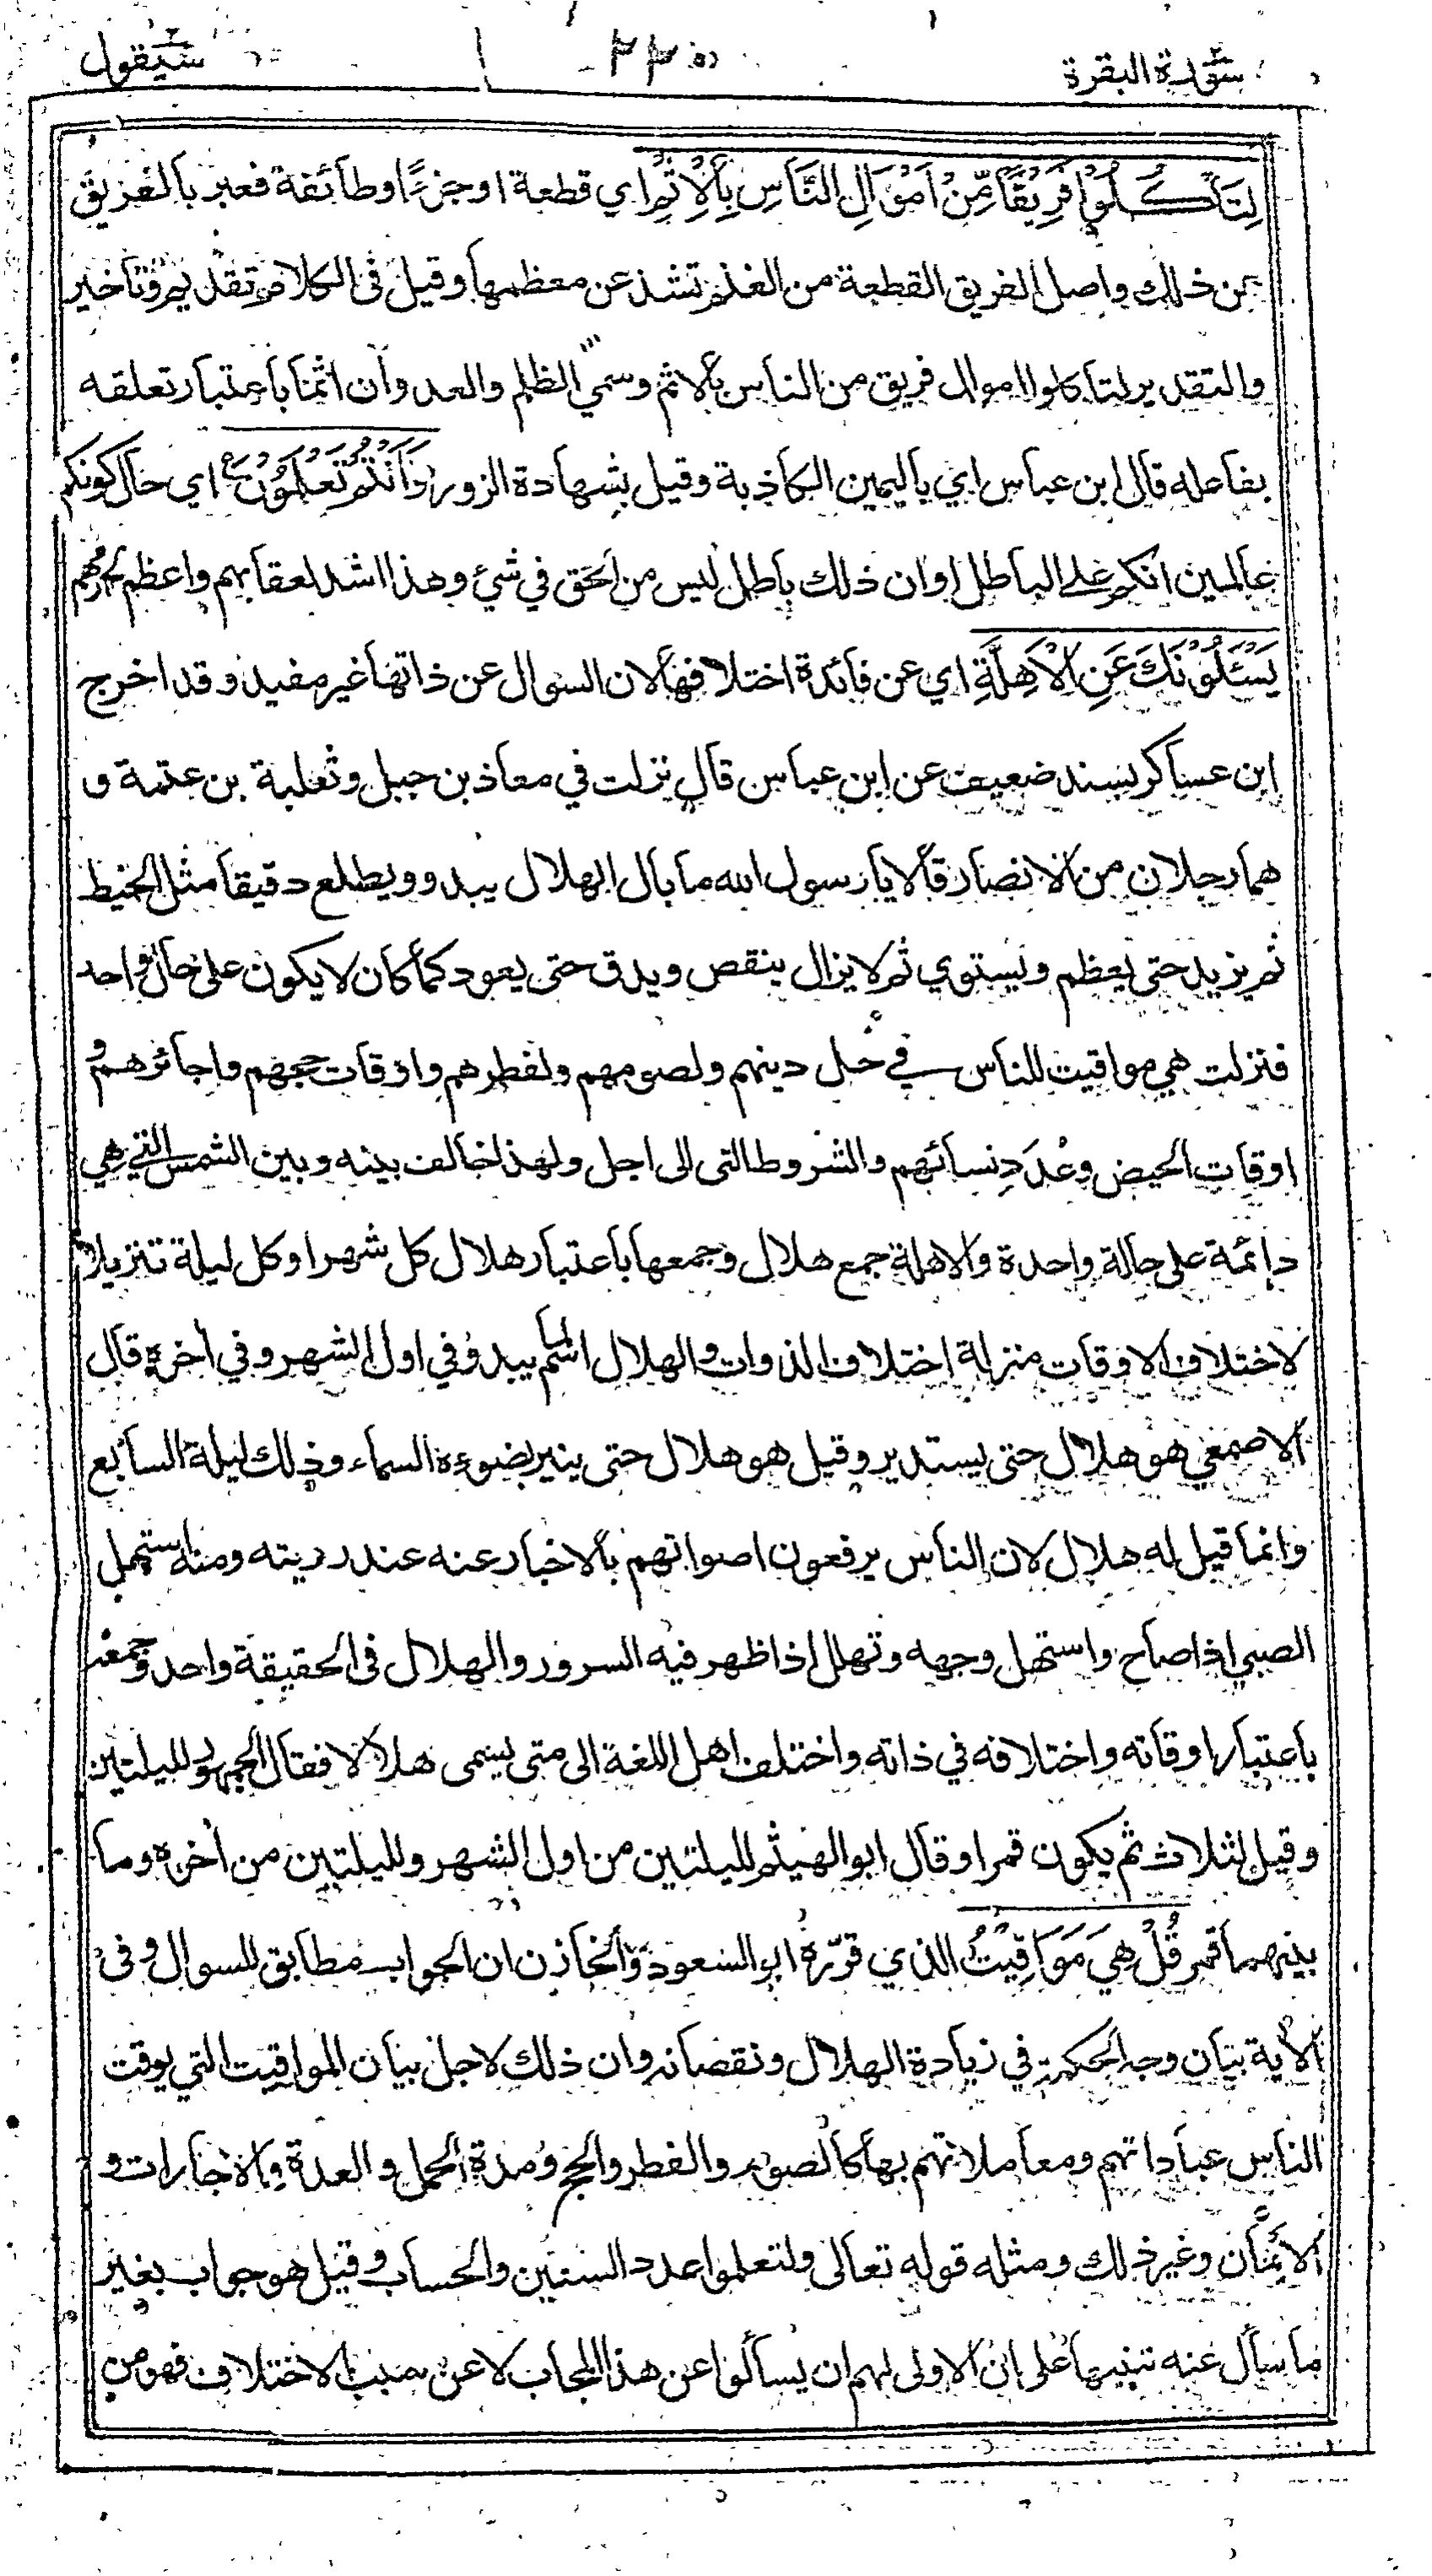 سورة البقرة
٢٣٥
سيقول
لِتَأْكُلُوْا فَرِيْقًا مِّنْ اَمْوَالِ النَّاسِ بِالْاِثْمِ اي قطعة او جزءًا وطائفة فعبر بالفريق
عن ذلك واصل الفريق القطعة من الغنم تشذ عن معظمها وقيل في الكلام تقديم وتاخير
والتقدير لتاكلوا اموال فريق من الناس بالاثم وسمي الظلم والعدوان اثما باعتبار تعلقه
بفاعله قال ابن عباس اي باليمين الكاذبة وقيل بشهادة الزور وَاَنْتُمْ تَعْلَمُوْنَ ع اي حال كونكم
عالمين انكم على الباطل او ان ذلك باطل ليس من الحق في شئ وهذا اشد لعقابهم واعظم لجرمهم
يَسْئَلُوْنَكَ عَنِ الْاَهِلَّةِ اي عن فائدة اختلافها لان السوال عن ذاتها غير مفيد وقد اخرج
ابن عساكر بسند ضعيف عن ابن عباس قال نزلت في معاذ بن جبل وثعلبة بن عتمة و
هما رجلان من الانصار قالا يا رسول الله ما بال الهلال يبدو ويطلع دقيقا مثل الخيط
ثم يزيد حتى يعظم ويستوي ثم لا يزال ينقص ويدق حتى يعود كما كان لا يكون على حال واحد
فنزلت هي مواقيت للناس في حل دينهم ولصومهم ولفطرهم واوقات حجهم واجائرهم و
اوقات الحيض وعدد نسائهم والشروط التي الى اجل ولهذا خالف بينه وبين الشمس التي هي
دائمة على حالة واحدة والاهلة جمع هلال وجمعها باعتبار هلال كل شهر او كل ليلة تنزيلا
لاختلاف الاوقات منزلة اختلاف الذوات والهلال اسم لما يبدو في اول الشهر وفي اخره قال
الاصمعي هو هلال حتى يستدير وقيل هو هلال حتى ينير بضوءه السماء وذلك ليلة السابع
وانما قيل له هلال لان الناس يرفعون اصواتهم بالاخبار عنه عند رديته ومنه استهل
الصبي اذا صاح واستهل وجهه وتهلل اذا ظهر فيه السرور والهلال في الحقيقة واحد وجمعه
باعتبار اوقاته واختلافه في ذاته واختلف اهل اللغة الى متى يسمى هلالا فقال الجمهور لليلتين
وقيل لثلاث ثم يكون قمرا وقال ابو الهيثم لليلتين من اول الشهر ولليلتين من اخره وما
بينهما قمر قُلْ هِيَ مَوَاقِيْتُ الذي قرّره ابو السعود والخازن ان الجواب مطابق للسوال وفي
الاية بيان وجه الحكمة في زيادة الهلال ونقصانه وان ذلك لاجل بيان المواقيت التي يوقت
الناس عباداتهم ومعاملاتهم بها كالصوم والفطر والحج ومدة الحمل والعدة والاجارات و
الائمان وغير ذلك ومثله قوله تعالى ولتعلموا عدد السنين والحساب وقيل هو جواب بغير
ما سأل عنه تنبيها على ان الاولى لهم ان يسألوا عن هذا المجاب لا عن سبب الاختلاف فهو من